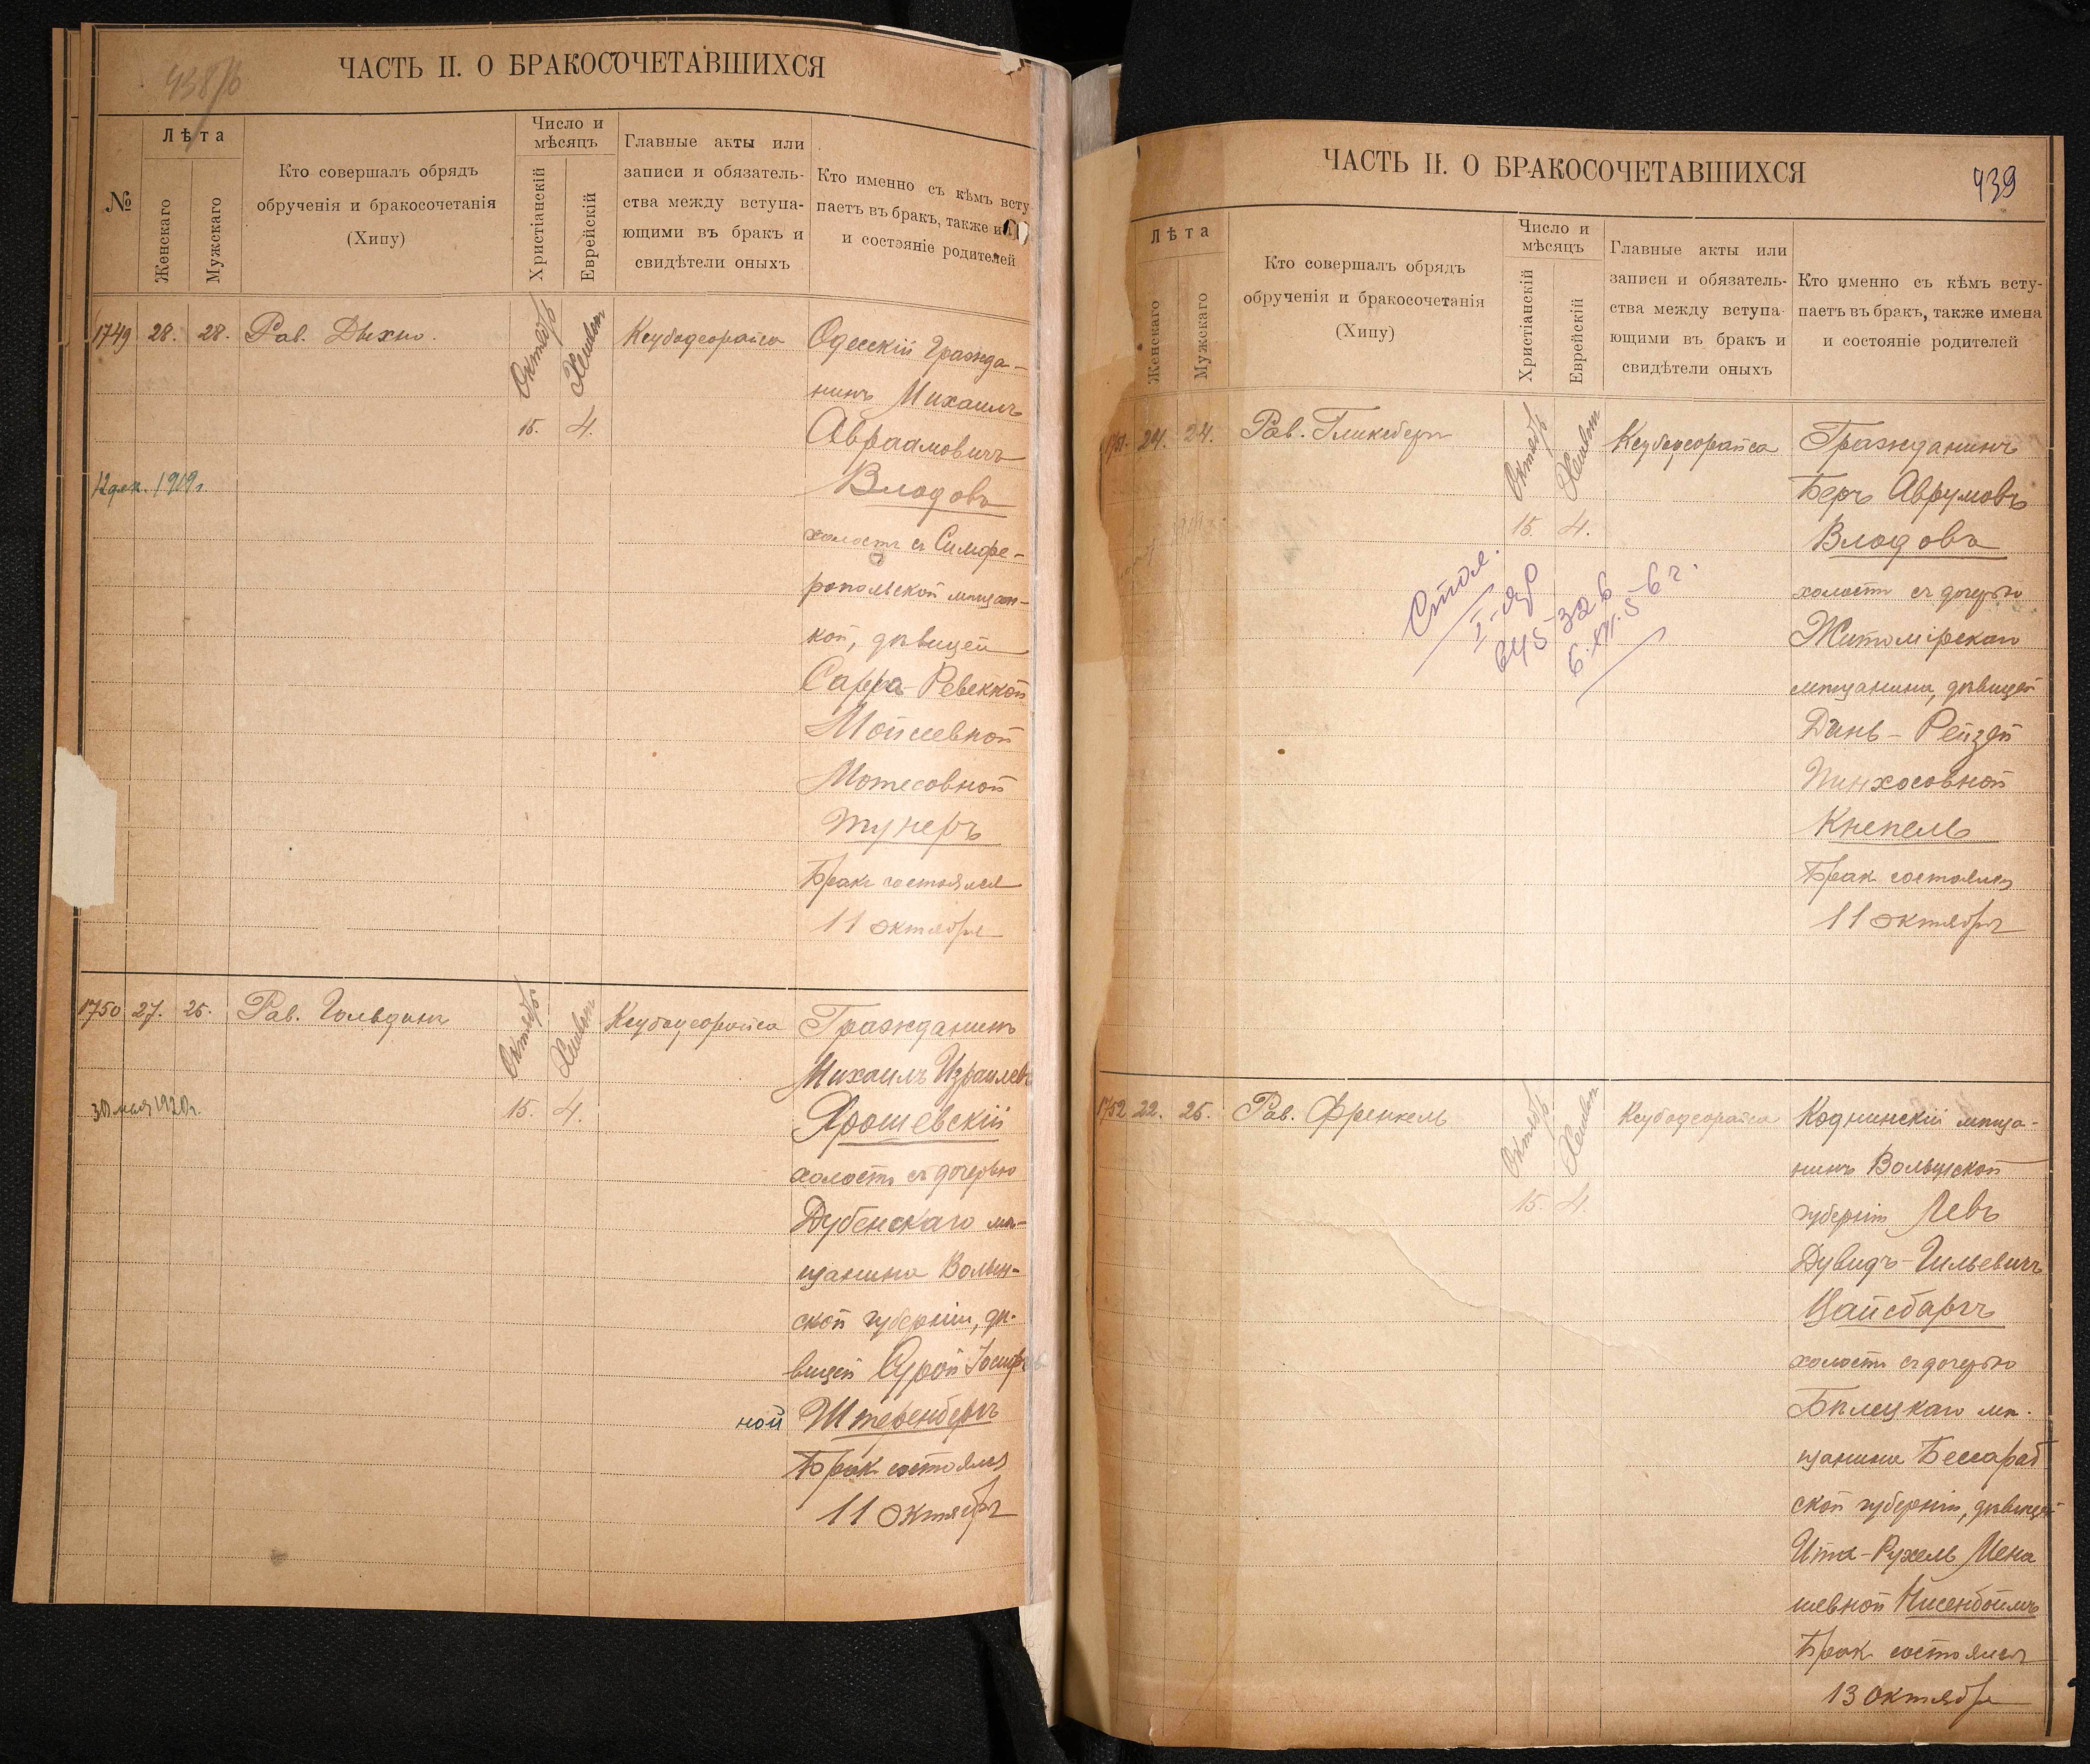 438/б
ЧАСТЬ II. О БРАКОСОЧЕТАВШИХСЯ
№
Лѣта
Женскаго
Мужскаго
Кто совершалъ обрядъ
обрученія и бракосочетанія
(Хипу)
Число и
мѣсяцъ
Христіанскій
Еврейскій
Главные акты или
записи и обязатель-
ства между вступа-
ющими въ бракъ и
свидѣтели оныхъ
Кто именно съ кѣмъ всту
паетъ въ бракъ, также и
и состояніе родителей
1749 28. 28. Рав. Дыхно.
Октябрь Хешвон
15. 4.
Ксубодеорайса
Одесскій Гражда-
нинъ Михаилъ
Авраамовичъ
Влодовъ
холостъ съ Симфе-
ропольской мѣщан-
кой, дѣвицей
Сарра-Ревеккой
Мойсеевной
Мотесовной
Тунеръ
Бракъ состоялся
11 октября
12 дек. 1919 г.
1750 27. 25. Рав. Гольдинъ
Октябрь Хешвон
15. 4.
Ксубодеорайса
Гражданинъ
Михаилъ Израилевъ
Ярошевскій
холостъ съ дочерью
Дубенскаго мѣ-
щанина Волын-
ской губерніи, дѣ-
вицей Сурой Іосифов
ной Штеренбергъ
Бракъ состоялся
11 октября
30 мая 1920 г.
ЧАСТЬ II. О БРАКОСОЧЕТАВШИХСЯ
439
Лѣта
Женскаго
Мужскаго
Кто совершалъ обрядъ
обрученія и бракосочетанія
(Хипу)
Число и
мѣсяцъ
Христіанскій
Еврейскій
Главные акты или
записи и обязатель-
ства между вступа-
ющими въ бракъ и
свидѣтели оныхъ
Кто именно съ кѣмъ всту-
паетъ въ бракъ, также имена
и состояніе родителей
1751. 24. 24. Рав. Гликсбергъ
Октябрь Хешвон
15. 4.
Ксубодеорайса
Гражданинъ
Беръ Аврумовъ
Влодовъ
холостъ съ дочерью
Житомірскаго
мѣщанина, дѣвицей
Динь-Рейзей
Пинхосовной
Кнепель
Бракъ состоялся
11 октября
645-326
6.XII.56 г.
1752 22. 25. Рав. Френкель
Октябрь Хешвон
15. 4.
Ксубодеорайса
Коднинскій мѣща-
нинъ Волынской
губерніи Левъ
Дувидъ-Гильевичъ
Цайсбаргъ
холостъ съ дочерью
Бѣлецкаго мѣ-
щанина Бессараб
ской губерніи, дѣвицей
Ита-Рухель Мена
шевной Нисенбоймъ
Бракъ состоялся
13 октября